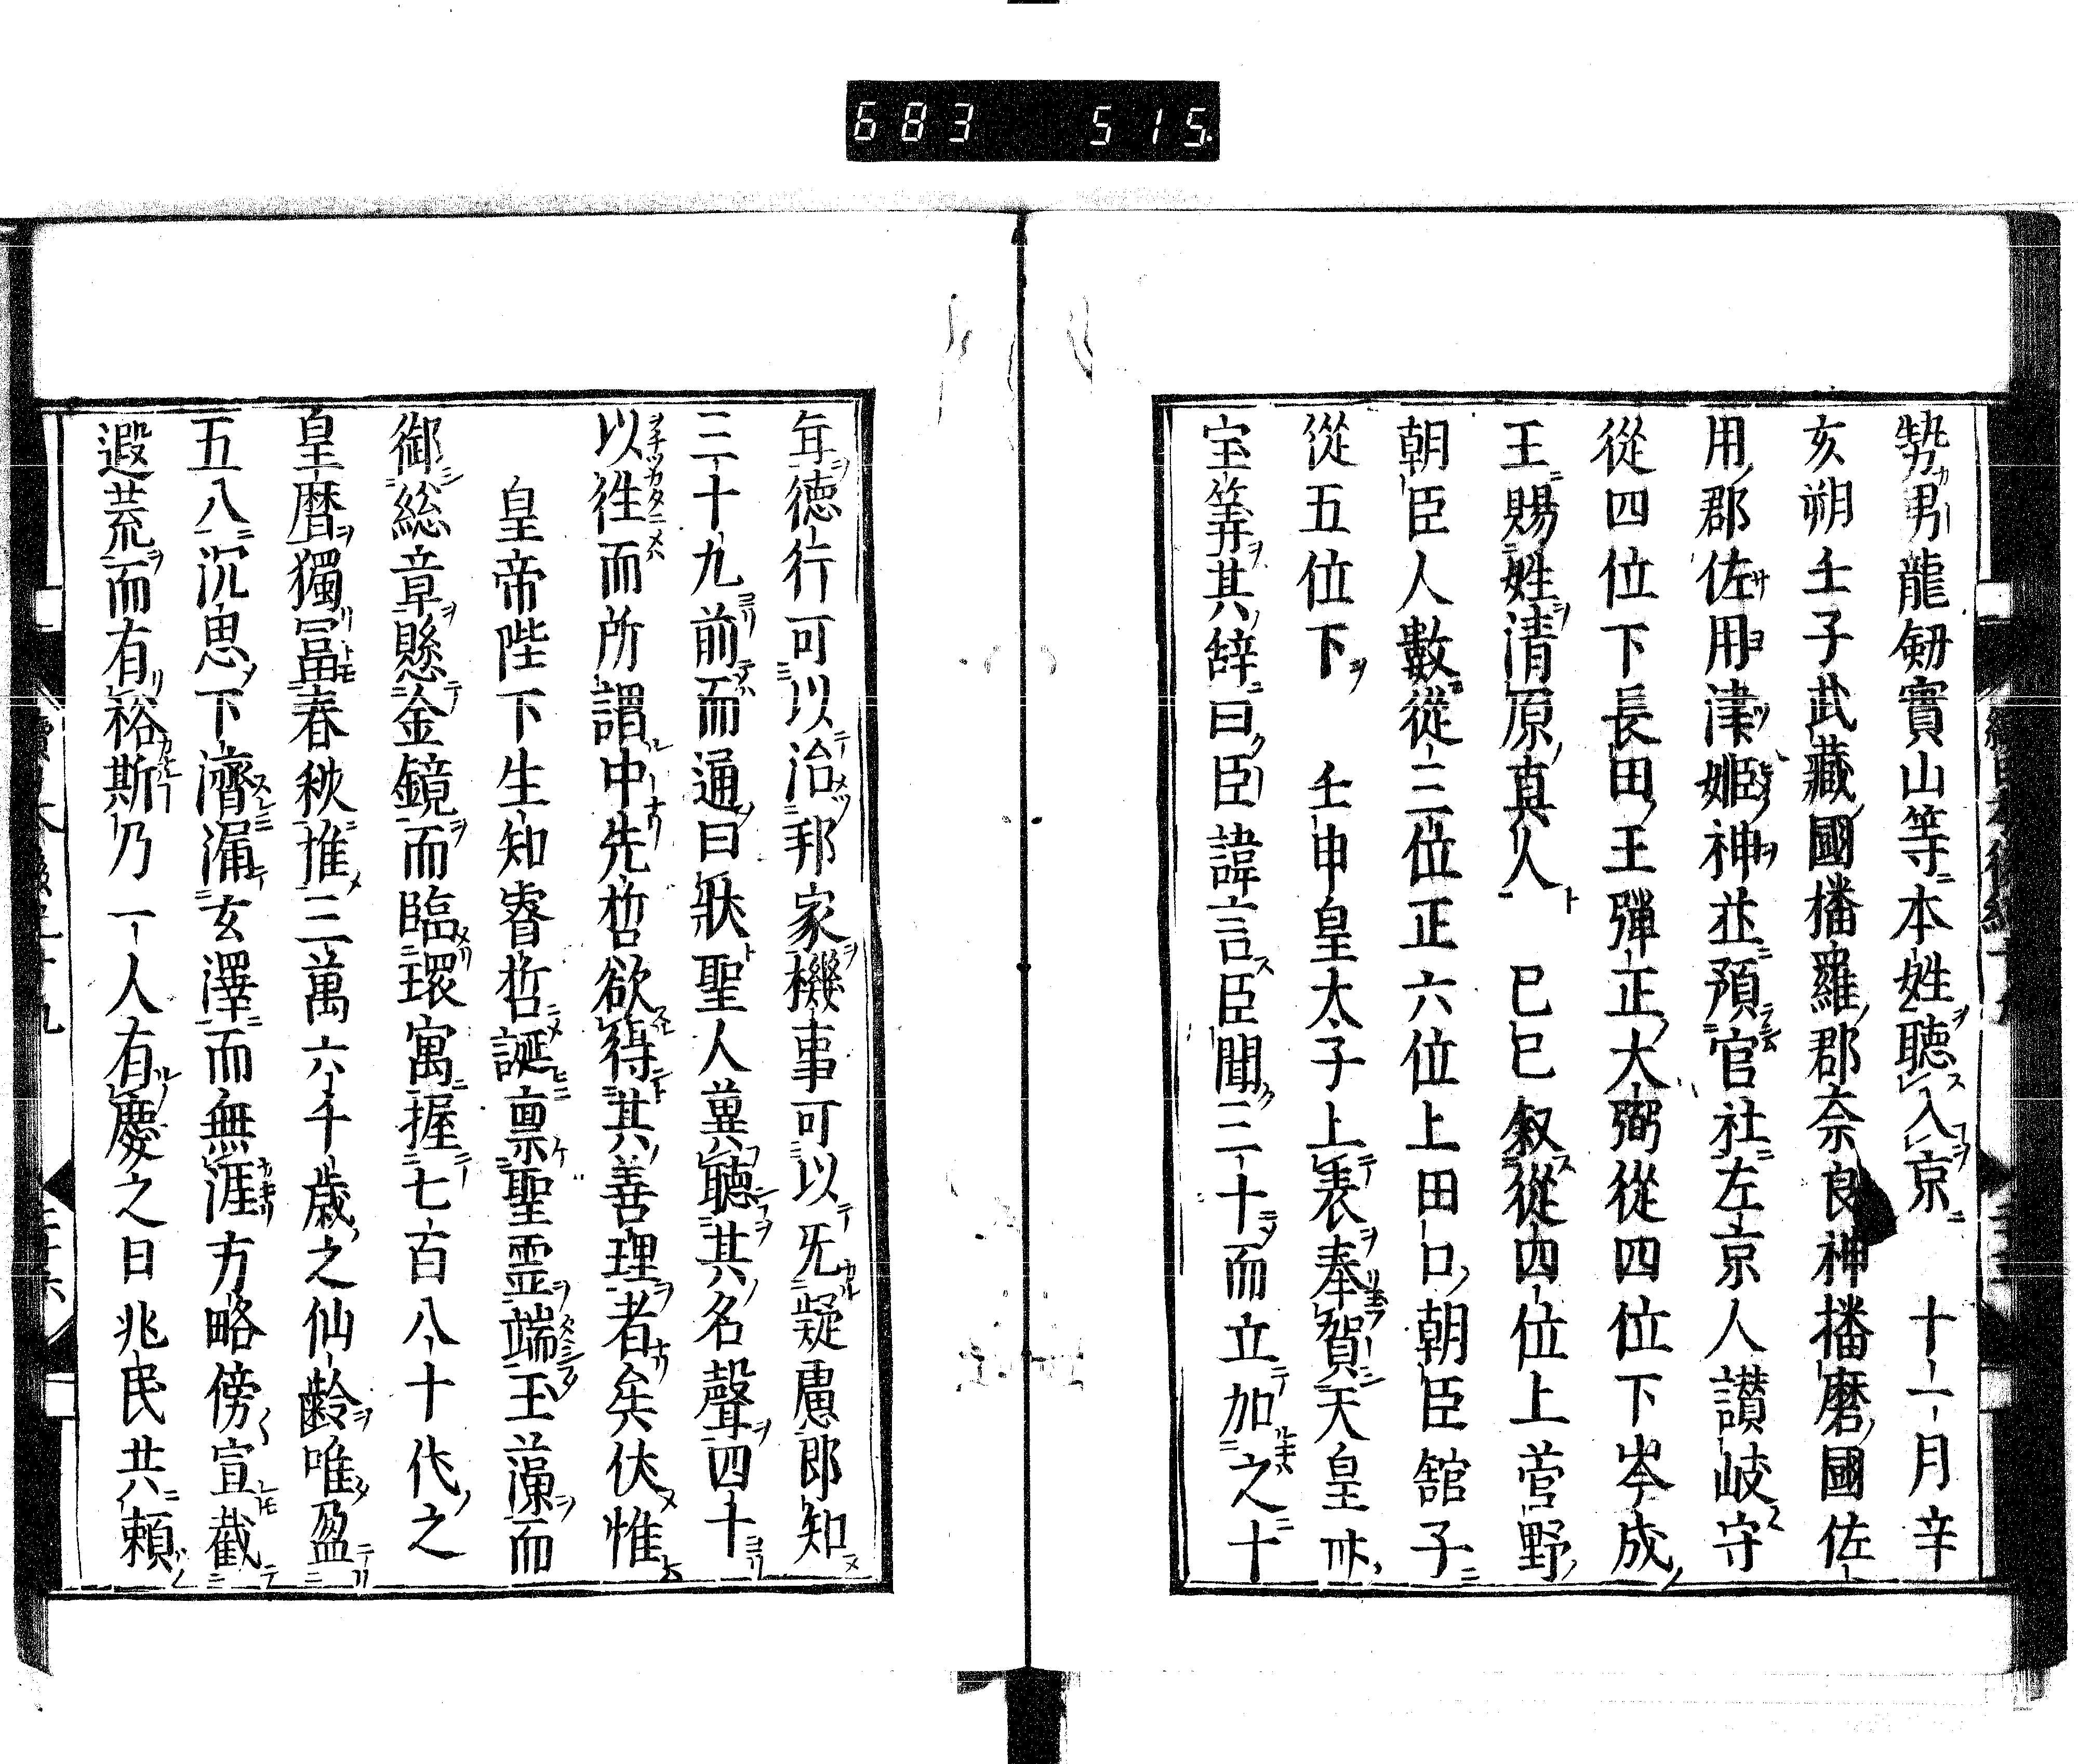 683 515
勢男龍劒實山等本姓聴入京 十一月辛
亥朔壬子武藏國播羅郡奈良神播磨國佐
用郡佐用津姬神並預官社左京人讃岐守
從四位下長田王彈正大弼從四位下岑成
王賜姓清原真人 巳巳叙從四位上菅野
朝臣人數從三位正六位上田口朝臣舘子
從五位下 壬申皇太子上表奉賀天皇卌
宝筭其辞曰臣諱言臣聞三十而立加之十
年德行可以治邦家機事可以旡疑慮郎知
三十九前而通曰狀聖人蕫聴其名聲四十
以徃而所謂中先哲欲得其善理者矣伏惟
皇帝陛下生知睿哲誕禀聖霊端玉藻而
御総章懸金鏡而臨環寓握七百八十代之
皇暦獨冨春秋推三萬六千歳之仙齢唯盈
五八沉思下濟漏玄澤而無涯方略傍宣截
遐荒而有裕斯乃一人有慶之日兆民共頼